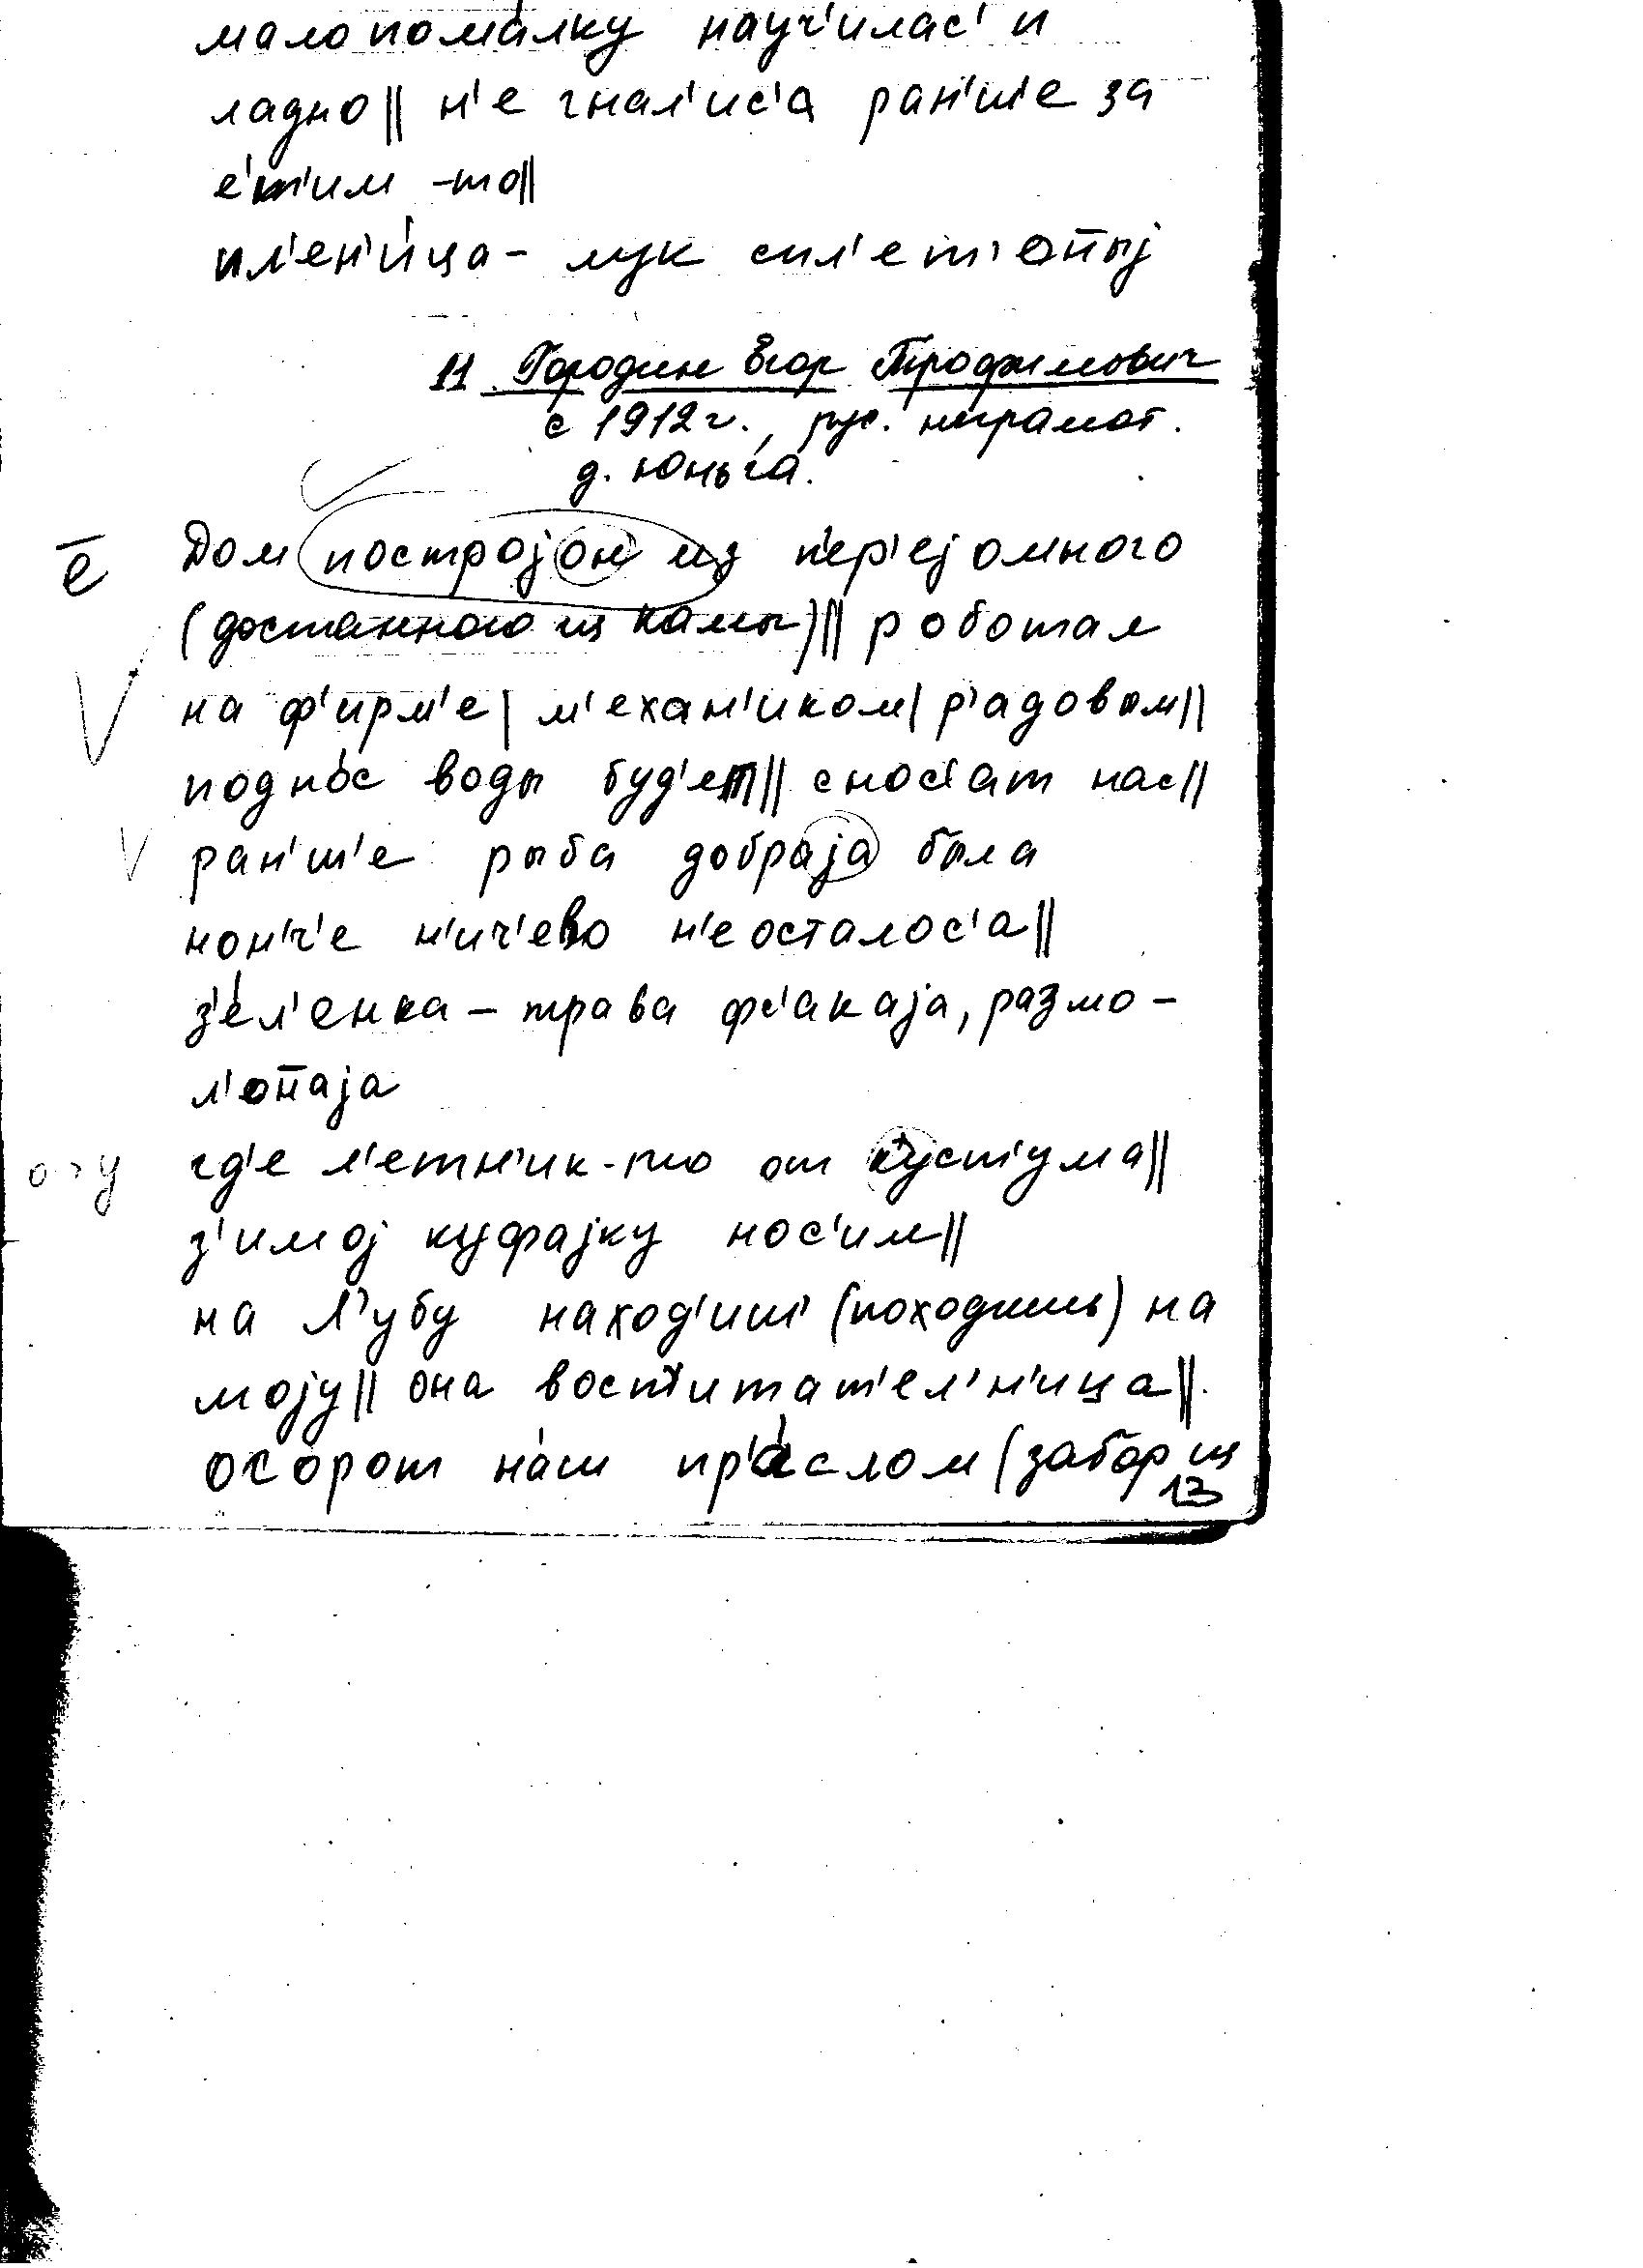 мало пома́лку науч'илас' и
ладно|| н'е гнал'ис'а ран'ш'е за
е́т'им -то||
пл'ен'и́ца - лук спл'ет'о̄ный
11 Городин Егор Трофимович
с 1912 г., рус. неграмот.
д. Юньга.
ē Дом построjон из п'ер'еjомного
(достанного из Камы)|| роботал
на ф'ирм'е| м'ехан'иком| р'адовым||
подно́с воды буд'ет|| снос'ат нас||
ран'ш'е рыба добраjа была
нон'ч'е н'ич'ево н'е осталос'а||
з'е́л'енка - трава фс'акаjа, размо-
л'он̄аjа
о > у гд'е л'етн'ик-то от куст'ума||
з'имоj куфаjку нос'им||
на Л'убу наход'иш' (походишь) на
моjу|| она воспитат'ел'н'ица||
огорот наш пр'а́слом (забор из
13